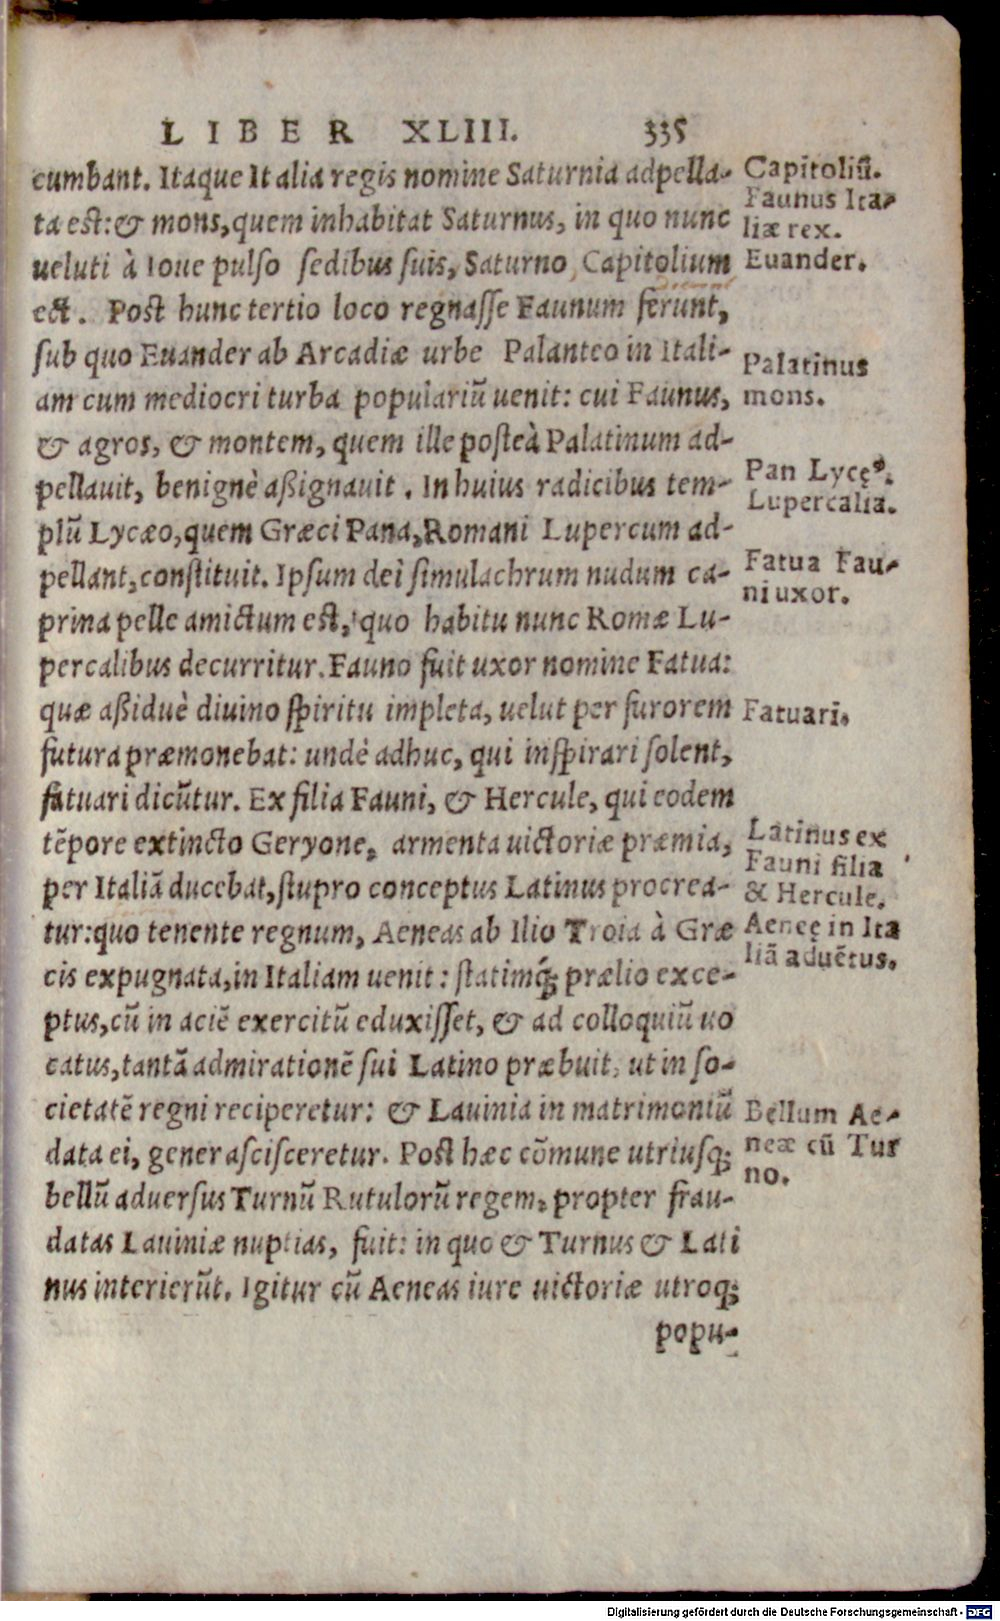 LIBER XLIII. 335
cumbant. Itaque Italia regis nomine Saturnia adpella-
ta est: & mons, quem inhabitat Saturnus, in quo nunc
ueluti à Ioue pulso sedibus suis, Saturno, Capitolium
est. Post hunc tertio loco regnasse Faunum ferunt,
sub quo Euander ab Arcadiæ urbe Palanteo in Itali-
am cum mediocri turba populariũ uenit: cui Faunus,
& agros, & montem, quem ille posteà Palatinum ad-
pellauit, benignè aßignauit. In huius radicibus tem-
plũ Lycæo, quem Græci Pana, Romani Lupercum ad-
pellant, constituit. Ipsum dei simulachrum nudum ca-
prina pelle amictum est, quo habitu nunc Romæ Lu-
percalibus decurritur. Fauno fuit uxor nomine Fatua:
quæ aßiduè diuino spiritu impleta, uelut per furorem
futura præmonebat: undè adhuc, qui inspirari solent,
fatuari dicũtur. Ex filia Fauni, & Hercule, qui eodem
tẽpore extincto Geryone, armenta uictoriæ præmia,
per Italiã ducebat, stupro conceptus Latinus procrea-
tur: quo tenente regnum, Aeneas ab Ilio Troia à Græ
cis expugnata, in Italiam uenit: statimq́; prælio exce-
ptus, cũ in aciẽ exercitũ eduxisset, & ad colloquiũ uo
catus, tantã admirationẽ sui Latino præbuit, ut in so-
cietatẽ regni reciperetur: & Lauinia in matrimoniũ
data ei, gener ascisceretur. Post hæc cõmune utriusq;
bellũ aduersus Turnũ Rutulorũ regem, propter frau-
datas Lauiniæ nuptias, fuit: in quo & Turnus & Lati
nus interierũt. Igitur cũ Aeneas iure uictoriæ utroq;
popu-
Capitoliũ.
Faunus Ita-
liæ rex.
Euander.
Palatinus
mons.
Pan Lycęꝰ.
Lupercalia.
Fatua Fau-
ni uxor.
Fatuari.
Latinus ex
Fauni filia
& Hercule.
Aeneę in Ita
liã aduẽtus.
Bellum Ae-
neæ cũ Tur
no.
Digitalisierung gefördert durch die Deutsche Forschungsgemeinschaft - DFG